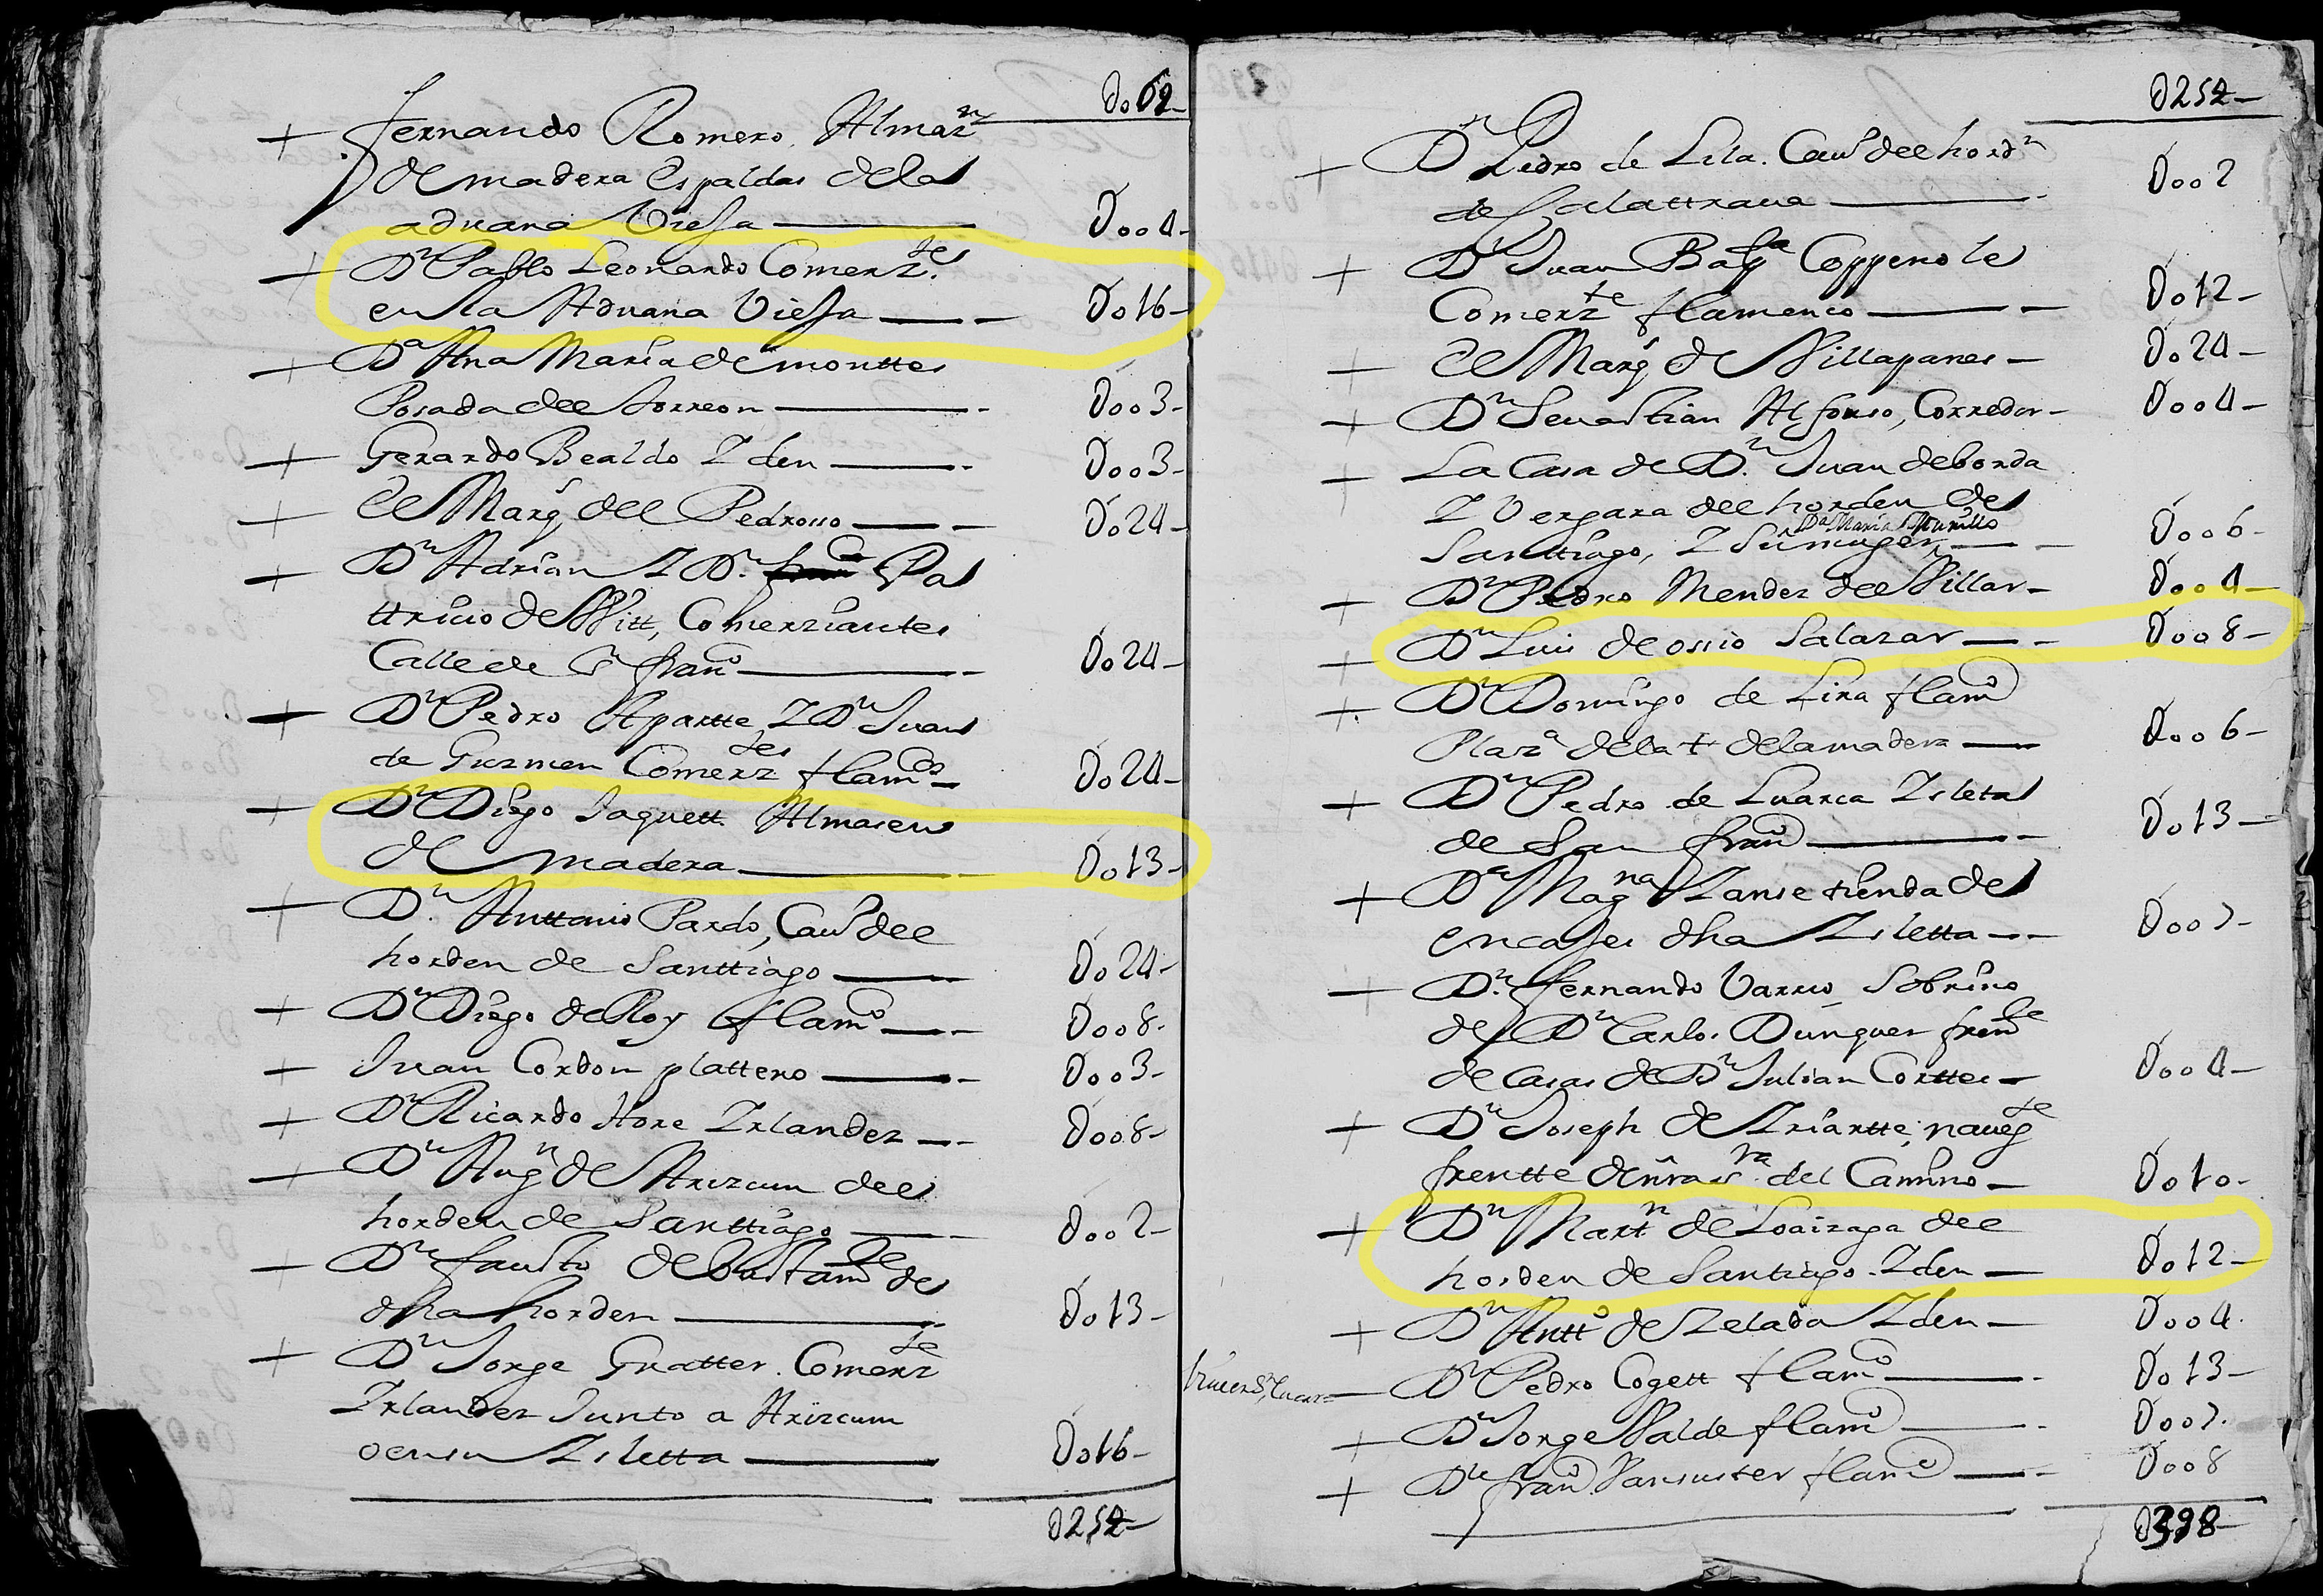 0062
Fernando Romero, Almaz.n
de madera Espaldas dela
aduana Viexa — 0004
Dn Pablo Leonardo Comerz.te
en la Aduana Viexa — 0016
Da Ana Maria de monttes
Posada del torreon — 0003
Gerardo Bealdo Iden — 0003
el Marqs del Pedrosso — 0024
Dn Adrian I Dn Pa
ttricio de Witt, Comerziantes
Calle de Sn Franco — 0024
Dn Pedro Apartte, I Dn Juan
de Guzmen Comerztes flamcos — 0024
Dn Diego Jaquett Almasen
de madera — 0013
Dn Anttonio Pardo, Cauo del
horden de Santtiago — 0024
Dn Diego de Roy flamco — 0008
Juan Cordon plattero — 0003
Dn Ricardo Hore Irlandez — 0008
Dn Augn de Arizcum del
horden de Santtiago — 0002
Dn fausto de bustamte de
dha horden — 0013
Dn Jorge Gratter Comerzte
Irlandez Junto a Arizcum
en su Isletta — 0016
0252
0252
Dn Pedro de Lila Cauo del hordn
de Calattraua — 0002
Dn Juan Bapta Coppenole
Comerzte flamenco — 0012
el Marqs de Villapanes — 0024
Dn Seuastian Alfonso, Corredor — 0004
La Casa de Dn Juan de borda
I Vergara del horden de
Da Maria Murillo
Santtiago, I Su muger, — 0006
Dn Pedro Mendez del Villar — 0004
Dn Luis de ossio Salazar — 0008
Dn Domingo de Lira flamco
Plaza dela + dela madera — 0006
Dn Pedro de Luarca Isleta
de San franco — 0013
Da Magna Ianse tienda de
encajes dha Isletta — 0007
Dn fernando Varrio Sobrino
de Dn Carlos Dunquer frente
de Casas de Dn Julian Corttes — 0004
Dn Joseph de Iriartte, nauegte
frentte de nra sra del Camino — 0010
Dn Martn de Loaizaga del
horden de Santiago Iden — 0012
Dn Antto de Zelada Iden — 0004
Dn Pedro Cogett flamco — 0013
Dn Jorge Walde flamco — 0007
Dn franco Vansuster flamco — 0008
0398